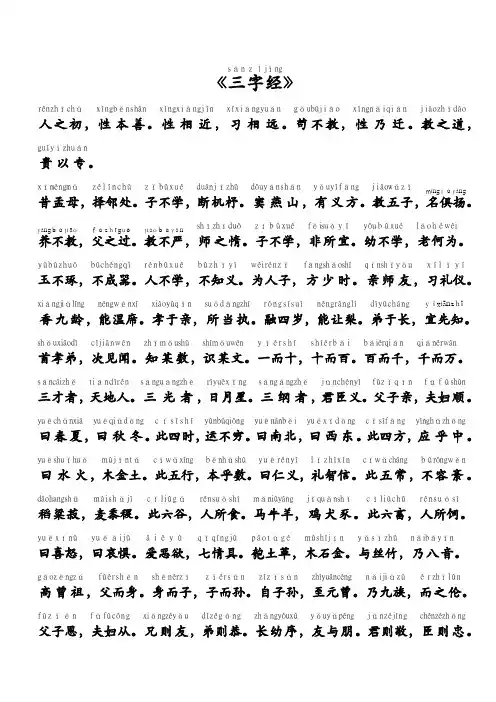 sānzìjīng
《三字经》
rénzhīchū xìngběnshàn xìngxiāngjìn xíxiāngyuǎn gǒubújiào xìngnǎiqiān jiàozhīdào
人之初，性本善。性相近，习相远。苟不教，性乃迁。教之道，
guìyǐzhuān
贵以专。
xīmèngmǔ zélínchǔ zǐbùxué duànjīzhù dòuyānshān yǒuyìfāng jiàowǔzǐ míngjùyáng
昔孟母，择邻处。子不学，断机杼。窦燕山，有义方。教五子，名俱扬。
yǎngbújiào fùzhīguò jiàobùyán shīzhīduò zǐbùxué fēisuǒyí yòubùxué lǎohéwéi
养不教，父之过。教不严，师之惰。子不学，非所宜。幼不学，老何为。
yùbùzhuó bùchéngqì rénbùxué bùzhīyì wéirénzǐ fāngshàoshí qīnshīyǒu xílǐyí
玉不琢，不成器。人不学，不知义。为人子，方少时。亲师友，习礼仪。
xiāngjiǔlíng néngwēnxí xiàoyúqīn suǒdāngzhí róngsìsuì néngrànglí dìyúzhǎng yíxiānzhī
香九龄，能温席。孝于亲，所当执。融四岁，能让梨。弟于长，宜先知。
shǒuxiàodì cìjiànwén zhīmǒushù shímǒuwén yīérshí shíérbǎi bǎiérqiān qiānérwàn
首孝弟，次见闻。知某数，识某文。一而十，十而百。百而千，千而万。
sāncáizhě tiāndìrén sānguāngzhě rìyuèxīng sāngāngzhě jūnchényì fùzǐqīn fūfùshùn
三才者，天地人。三光者，日月星。三纲者，君臣义。父子亲，夫妇顺。
yuēchūnxià yuēqiūdōng cǐsìshí yùnbùqióng yuēnánběi yuēxīdōng cǐsìfāng yìnghūzhōng
曰春夏，曰秋冬。此四时，运不穷。曰南北，曰西东。此四方，应乎中。
yuēshuǐhuǒ mùjīntǔ cǐwǔxíng běnhūshù yuērényì lǐzhìxìn cǐwǔcháng bùróngwěn
曰水火，木金土。此五行，本乎数。曰仁义，礼智信。此五常，不容紊。
dàoliángshū màishǔjì cǐliùgǔ rénsuǒshí mǎniúyáng jīquǎnshǐ cǐliùchù rénsuǒsì
稻粱菽，麦黍稷。此六谷，人所食。马牛羊，鸡犬豕。此六畜，人所饲。
yuēxǐnù yuēāijù àiwùyù qīqíngjù páotǔgé mùshíjīn yǔsīzhú nǎibāyīn
曰喜怒，曰哀惧。爱恶欲，七情具。匏土革，木石金。与丝竹，乃八音。
gāozēngzǔ fùérshēn shēnérzǐ zǐérsūn zìzǐsūn zhìyuánzēng nǎijiǔzú érzhīlún
高曾祖，父而身。身而子，子而孙。自子孙，至元曾。乃九族，而之伦。
fùzǐēn fūfùcóng xiōngzéyǒu dìzégōng zhǎngyòuxù yǒuyǔpéng jūnzéjìng chénzézhōng
父子恩，夫妇从。兄则友，弟则恭。长幼序，友与朋。君则敬，臣则忠。